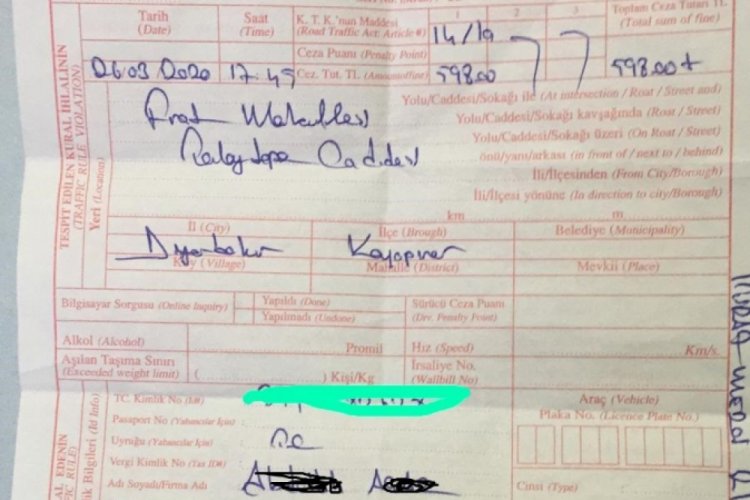 Tarih (Date)
Saat (Time)
K. T. K.'nun Maddesi (Road Traffic Act: Article #)
1 2 3
14/19
Toplam Ceza Tutarı TL (Total sum of fine)
Ceza Puanı (Penalty Point)
26/03/2020 17:45
Cez. Tot. TL (Amount of fine)
598.00
598.00
TESPİT EDİLEN KURAL İHLALİNİN
(TRAFFIC RULE VIOLATION)
Yeri (Location)
Fırat Mahallesi
Caddesi
Yolu/Caddesi/Sokağı ile (At intersection / Roat / Street and)
Yolu/Caddesi/Sokağı kavşağında (Roat / Street)
Yolu/Caddesi/Sokağı üzeri (On Roat / Street)
önü/yanı/arkası (in front of / next to / behind)
İli/İlçesinden (From City/Borough)
İli/İlçesi yönüne (In direction to city/Borough)
km m
İl (City)
İlçe (Brough)
Belediye (Municipality)
Diyarbakır Kayapınar
Köy (Village)
Mahalle (District)
Mevkii (Place)
Bilgisayar Sorgusu (Online Inquiry)
Yapıldı (Done)
Yapılmadı (Undone)
Sürücü Ceza Puanı
(Drv. Penalty Point)
Alkol (Alcohol)
Promil
Hız (Speed)
Km/s
Aşılan Taşıma Sınırı
(Exceeded weight limit)
( ) Kişi/Kg
İrsaliye No.
(Wallbill No)
TC. Kimlik No (Id#)
Araç (Vehicle)
Pasaport No (Yabancılar İçin)
Plaka No. (Licence Plate No.)
Uyruğu (Yabancılar İçin)
Vergi Kimlik No (Tax ID#)
Adı Soyadı/Firma Adı
Cinsi (Type)